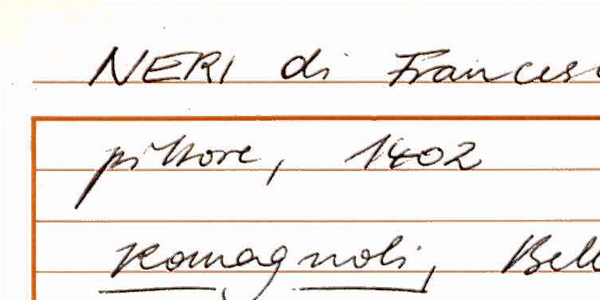 NERI di Frances
pittore, 1402
Romagnoli, Bell